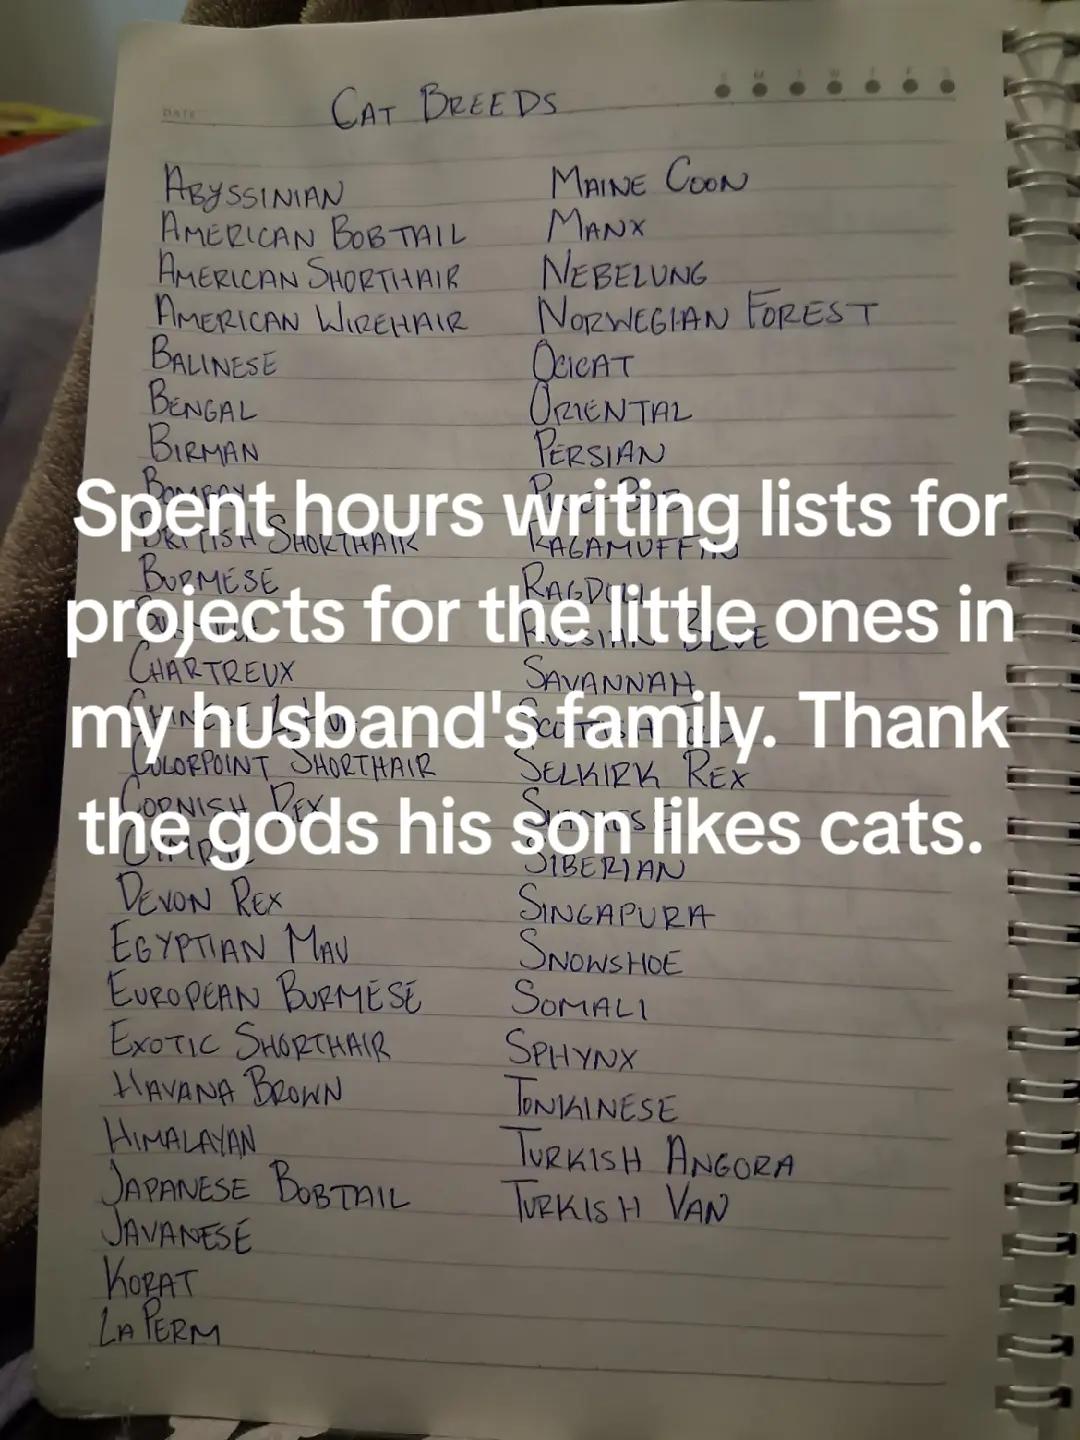 DATE
S M T W T F S
CAT BREEDS
ABYSSINIAN
AMERICAN BOBTAIL
AMERICAN SHORTHAIR
AMERICAN WIREHAIR
BALINESE
BENGAL
BIRMAN
BOMBAY
BRITISH SHORTHAIR
BURMESE
CHARTREUX
COLORPOINT SHORTHAIR
CORNISH REX
CYMRIC
DEVON REX
EGYPTIAN MAU
EUROPEAN BURMESE
EXOTIC SHORTHAIR
HAVANA BROWN
HIMALAYAN
JAPANESE BOBTAIL
JAVANESE
KORAT
LA PERM
MAINE COON
MANX
NEBELUNG
NORWEGIAN FOREST
OCICAT
ORIENTAL
PERSIAN
PIXIE BOB
RAGAMUFFIN
RAGDOLL
RUSSIAN BLUE
SAVANNAH
SCOTTISH FOLD
SELKIRK REX
SIAMESE
SIBERIAN
SINGAPURA
SNOWSHOE
SOMALI
SPHYNX
TONKINESE
TURKISH ANGORA
TURKISH VAN
Spent hours writing lists for
projects for the little ones in
my husband's family. Thank
the gods his son likes cats.